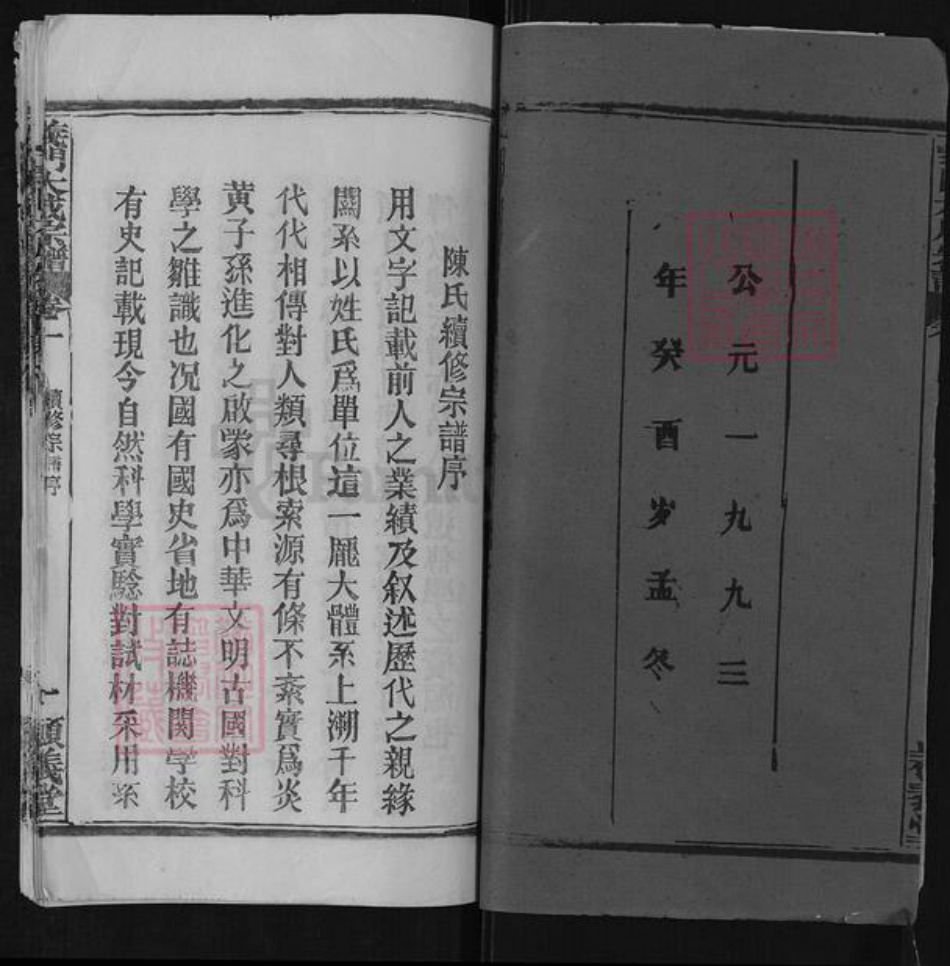 公元一九九三
年癸酉岁孟冬
陳氏續修宗譜序
用文字記載前人之業績及叙述歷代之親緣
關系以姓氏爲單位這一龐大體系上溯千年
代代相傳對人類尋根索源有條不紊實爲炎
黄子孫進化之啟蒙亦爲中華文明古國對科
學之雛識也况國有國史省地有誌機関学校
有史記載現今自然科學實騐對試材采用系
義門大成宗譜 卷一
續修宗譜序
一
順義堂